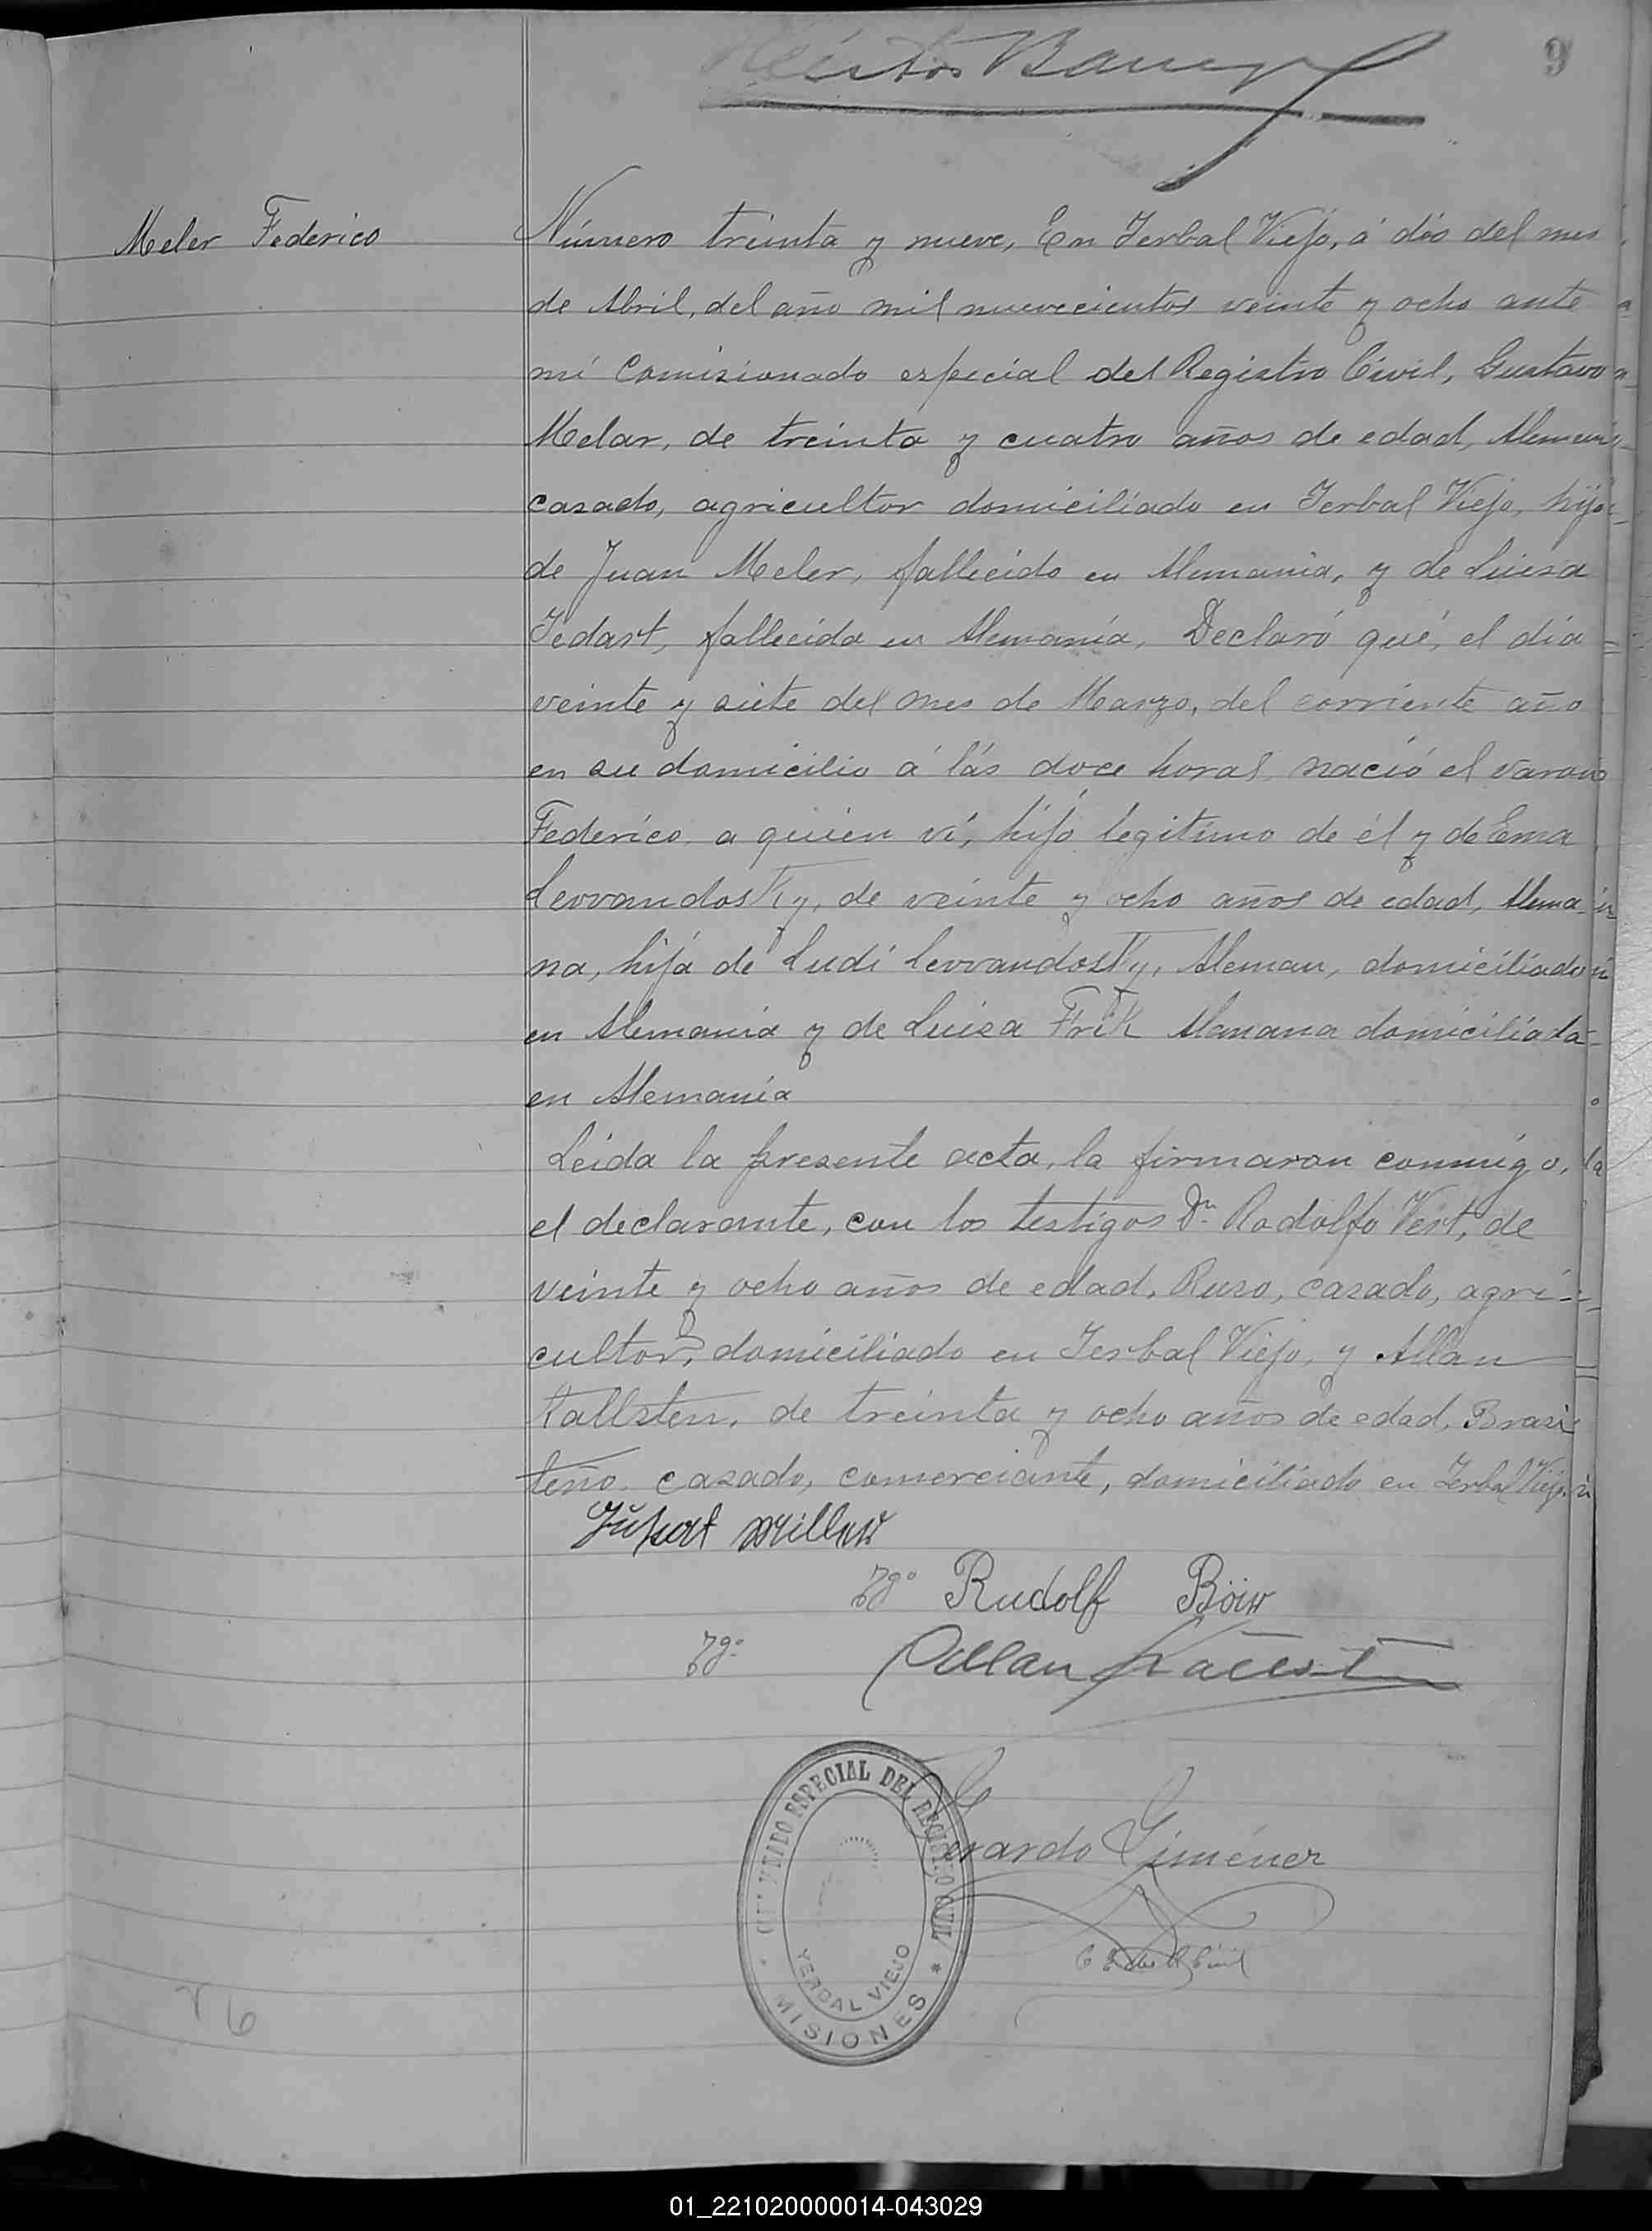 9
Meler Federico
Número treinta y nueve, En Yerbal Viejo, á dos del mes
de Abril, del año mil nuevecientos veinte y ocho ante
mí Comisionado especial del Registro Civil, Gustavo
Melar, de treinta y cuatro años de edad, Aleman
casado, agricultor domiciliado en Yerbal Viejo, hijo
de Juan Meler, fallecido en Alemania, y de Luisa
fallecida en Alemania, Declaró qué, el día
veinte y siete del mes de Marzo, del corriente año
en su domicilio á lás doce horas nació el varon
Federico a quien ví, hijo legitimo de él y de Ema
Levvandosky, de veinte y ocho años de edad, Alema-
na, hija de Ludi Levvandosky, Aleman, domiciliado
en Alemania y de Luisa Frik Alamana domiciliada
en Alemania
Leida la presente acta, la firmaron conmigo,
el declarante, con los testigos Dn Rodolfo Vert, de
veinte y ocho años de edad, Ruso, casado, agri-
cultor, domiciliado en Yerbal Viejo, y Allan
Kallsten, de treinta y ocho años de edad, Brasi
leño casado, comerciante, domiciliado en Yerbal Viejo
Tgo Rudolf
Tgo Allan
Gerardo Giménez
ESPECIAL DEL REGISTRO CIVIL
YERBAL VIEJO
* MISIONES *
01_221020000014-043029